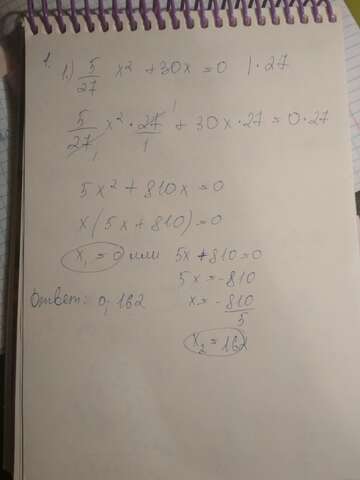 1.
1.) 5/27 x² + 30x = 0 | · 27
5/27 x² · 27/1 + 30x · 27 = 0 · 27
5x² + 810x = 0
x(5x + 810) = 0
x₁ = 0 или 5x + 810 = 0
5x = -810
Ответ: 0, 162 x = -810/5
x₂ = 162